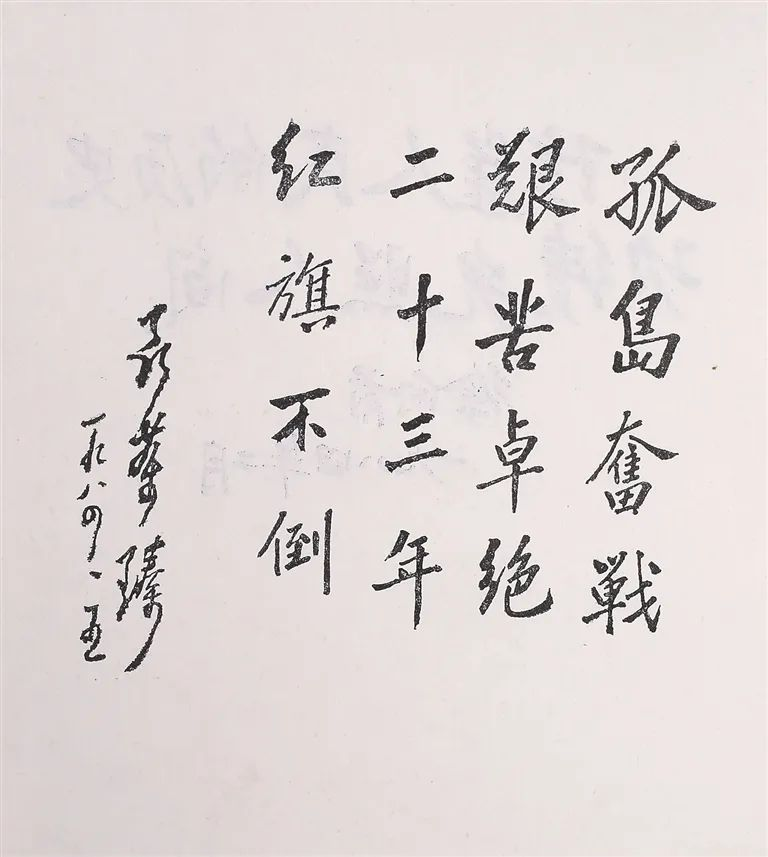 孤島奮戰
艱苦卓绝
二十三年
红旗不倒
聂荣臻
一九八四、五